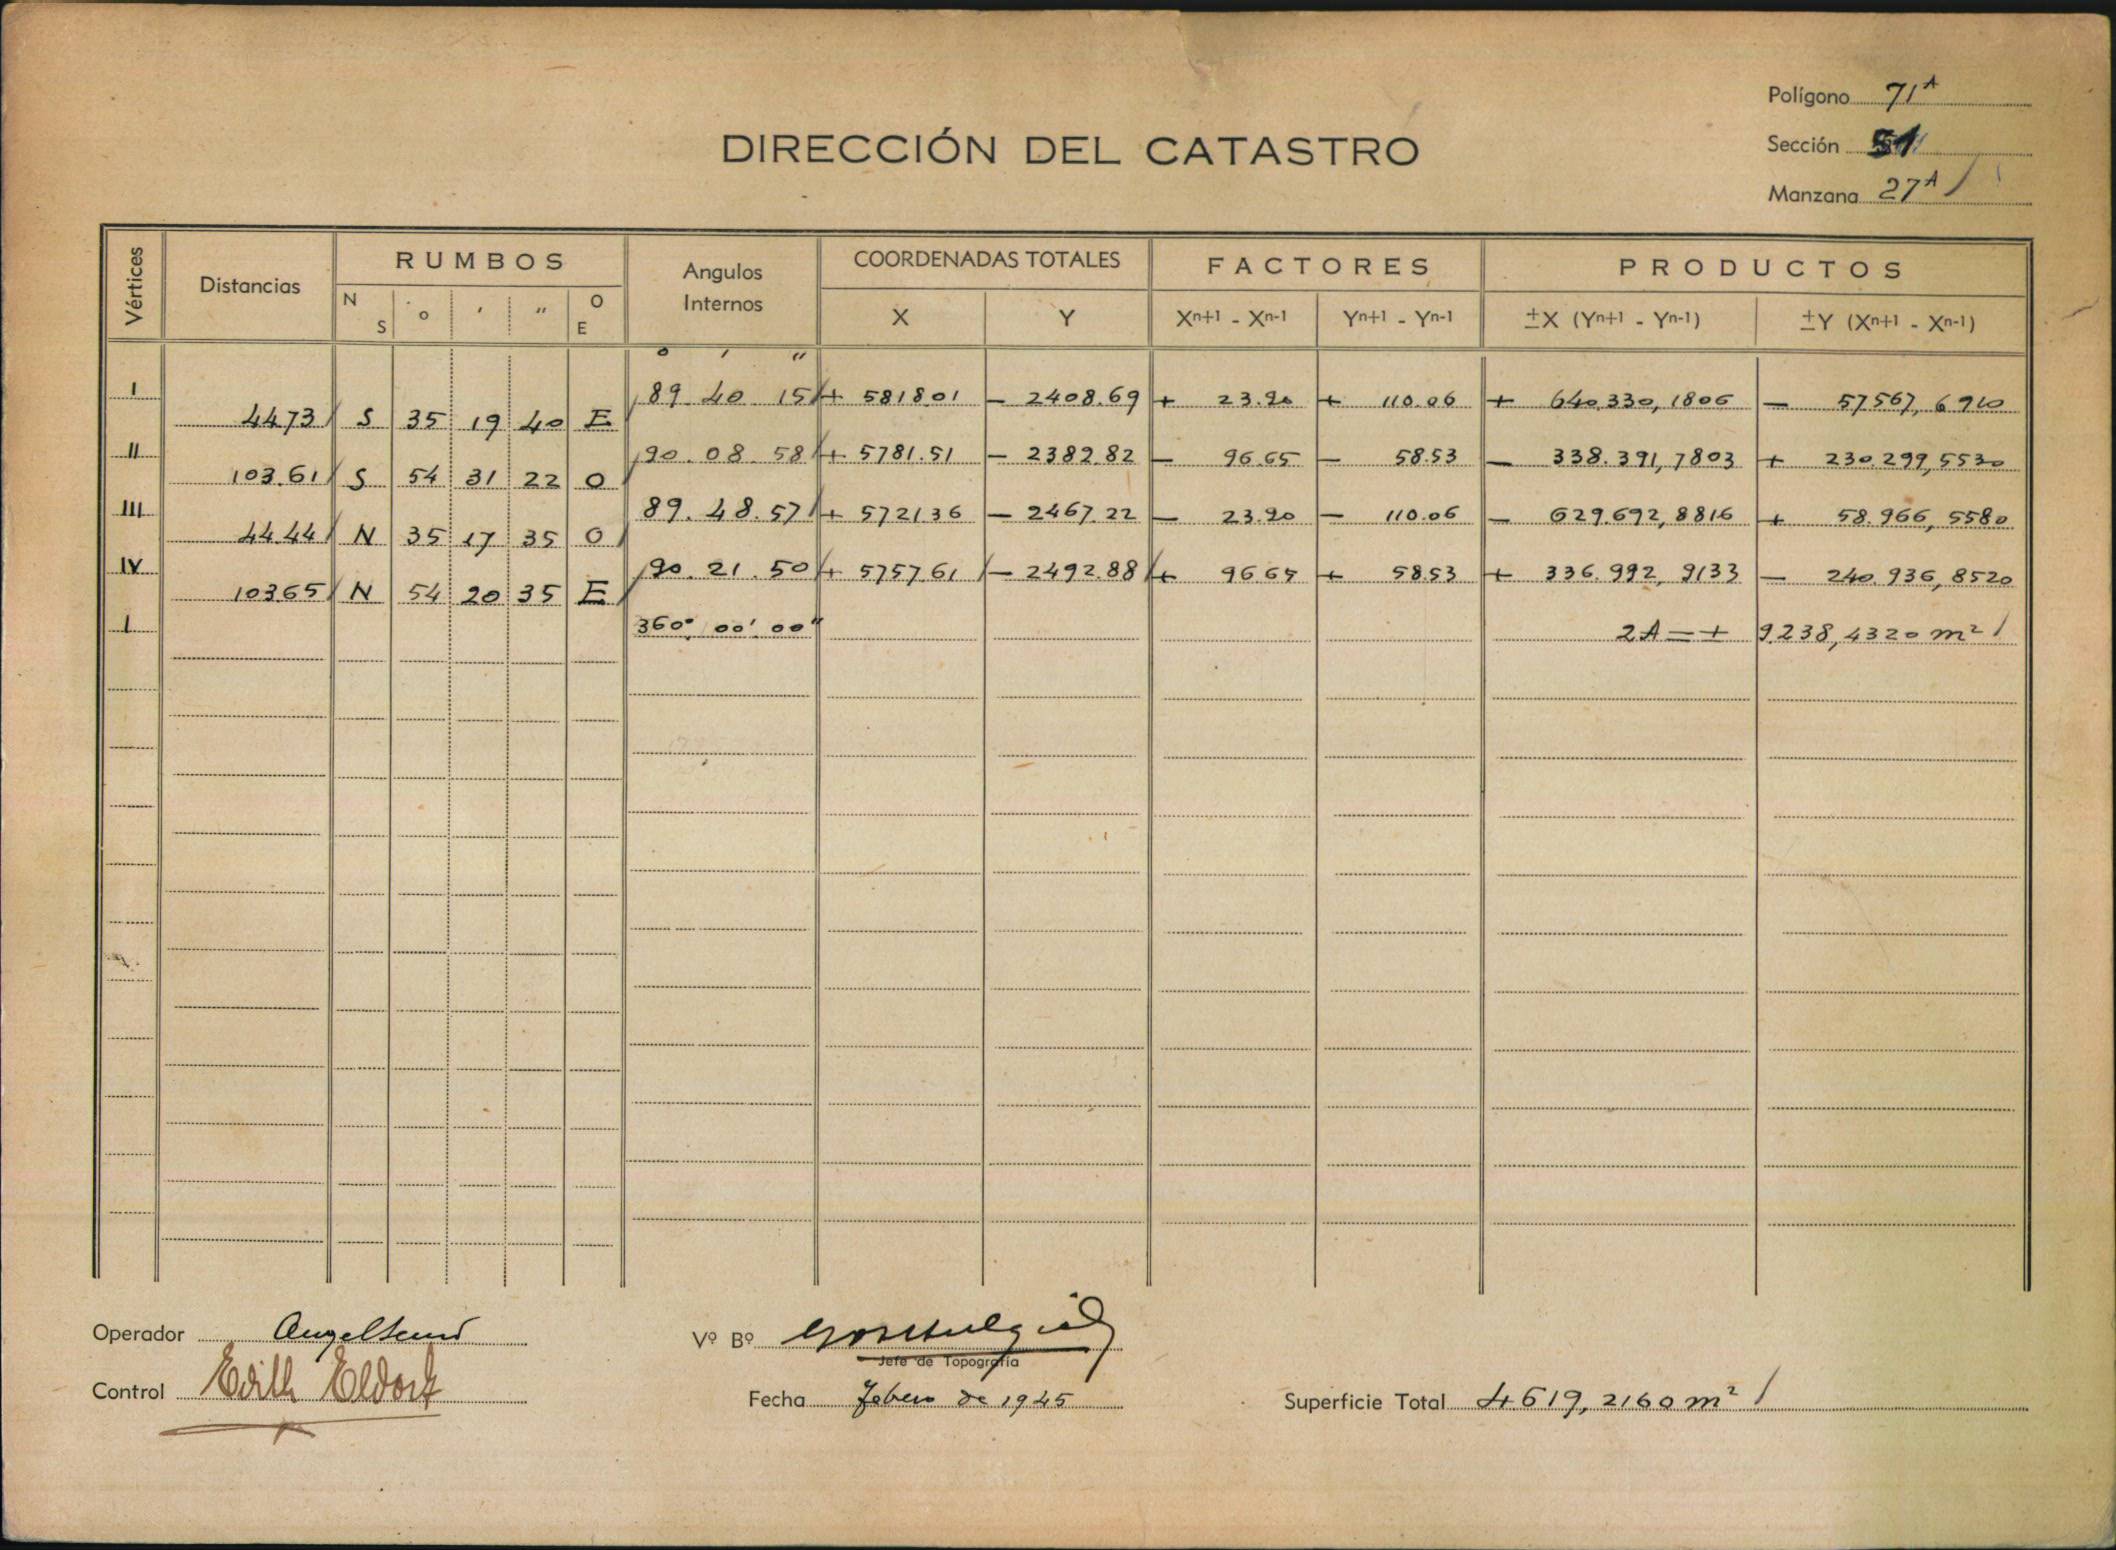 Polígono 71A
DIRECCIÓN DEL CATASTRO
Sección 51
Manzana 27A
Vértices Distancias RUMBOS Angulos Internos COORDENADAS TOTALES FACTORES PRODUCTOS
N S ° ' " O E X Y Xn+1 - Xn-1 Yn+1 - Yn-1 ±X (Yn+1 - Yn-1) ±Y (Xn+1 - Xn-1)
° ' "
I 89 40 15 + 5818.01 - 2408.69 + 23.90 + 110.06 + 640.330,1806 - 57567,6910
44.73 S 35 19 40 E
II 90. 08 58 + 5781.51 - 2382.82 - 96.65 - 58.53 - 338.391,7803 + 230.299,5530
103.61 S 54 31 22 O
III 89. 48. 57 + 5721.36 - 2467.22 - 23.90 - 110.06 - 629.692,8816 + 58.966,5580
44.44 N 35 17 35 O
IV 90. 21. 50 + 5757.61 - 2492.88 + 96.65 + 58.53 + 336.992,9133 - 240.936,8520
103.65 N 54 20 35 E
I 360°. 00'. 00" 2A = + 9.238,4320 m²
Operador
Vº Bº
Jefe de Topografía
Control Edith Eldorf
Fecha Febero de 1945
Superficie Total 4619,2160 m²